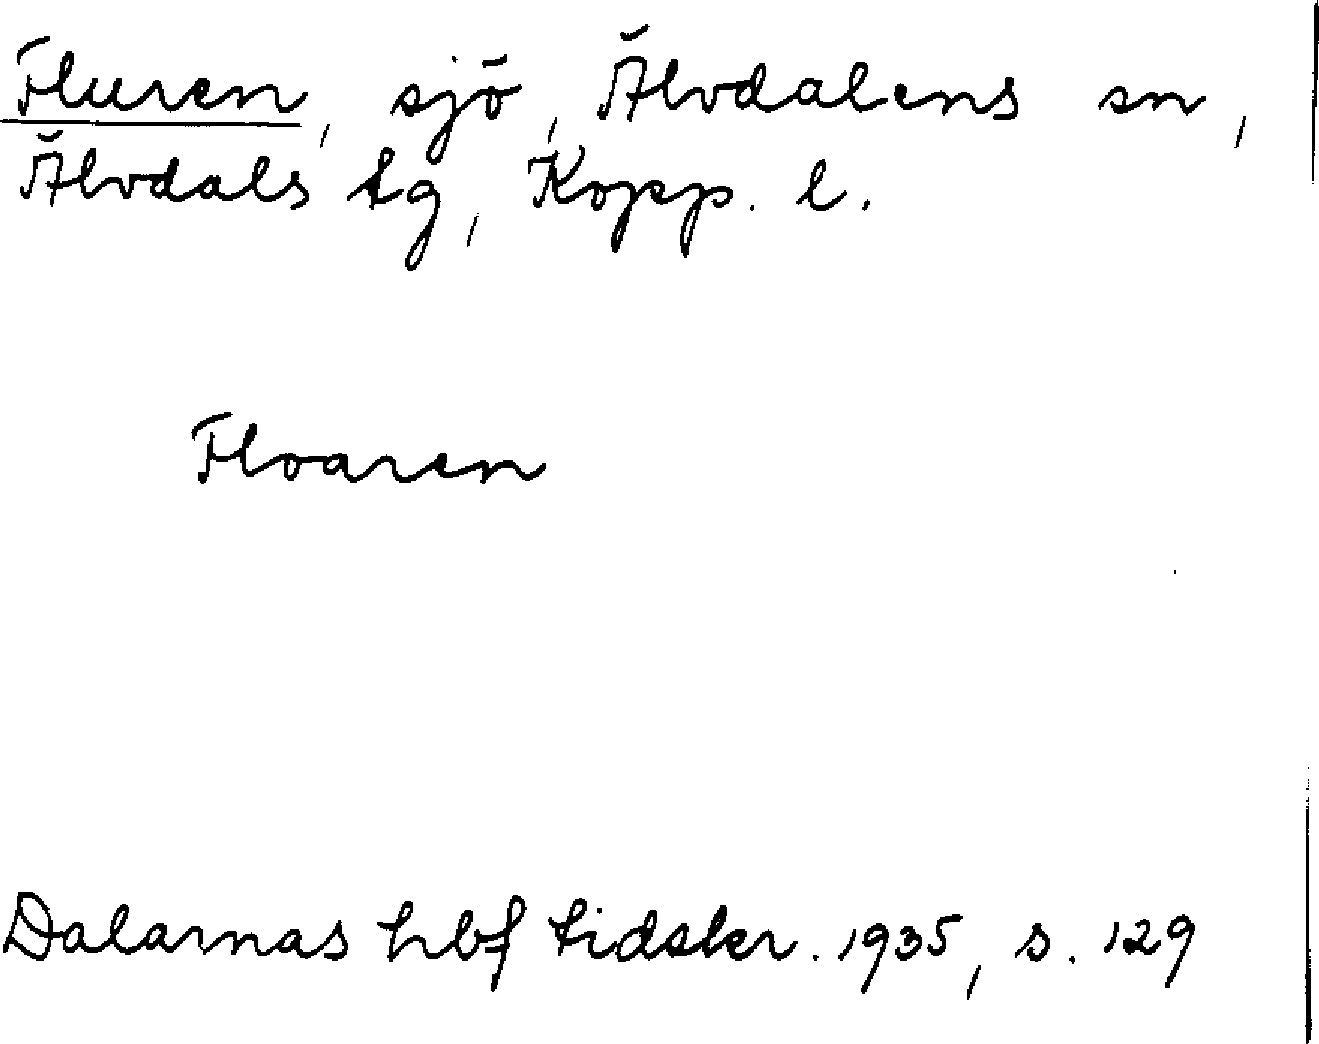 Fluren, sjö, Älvdalens sn,
Älvdals tg, Kopp. l.
Floaren
Dalarnas hbf tidskr. 1935, s. 129